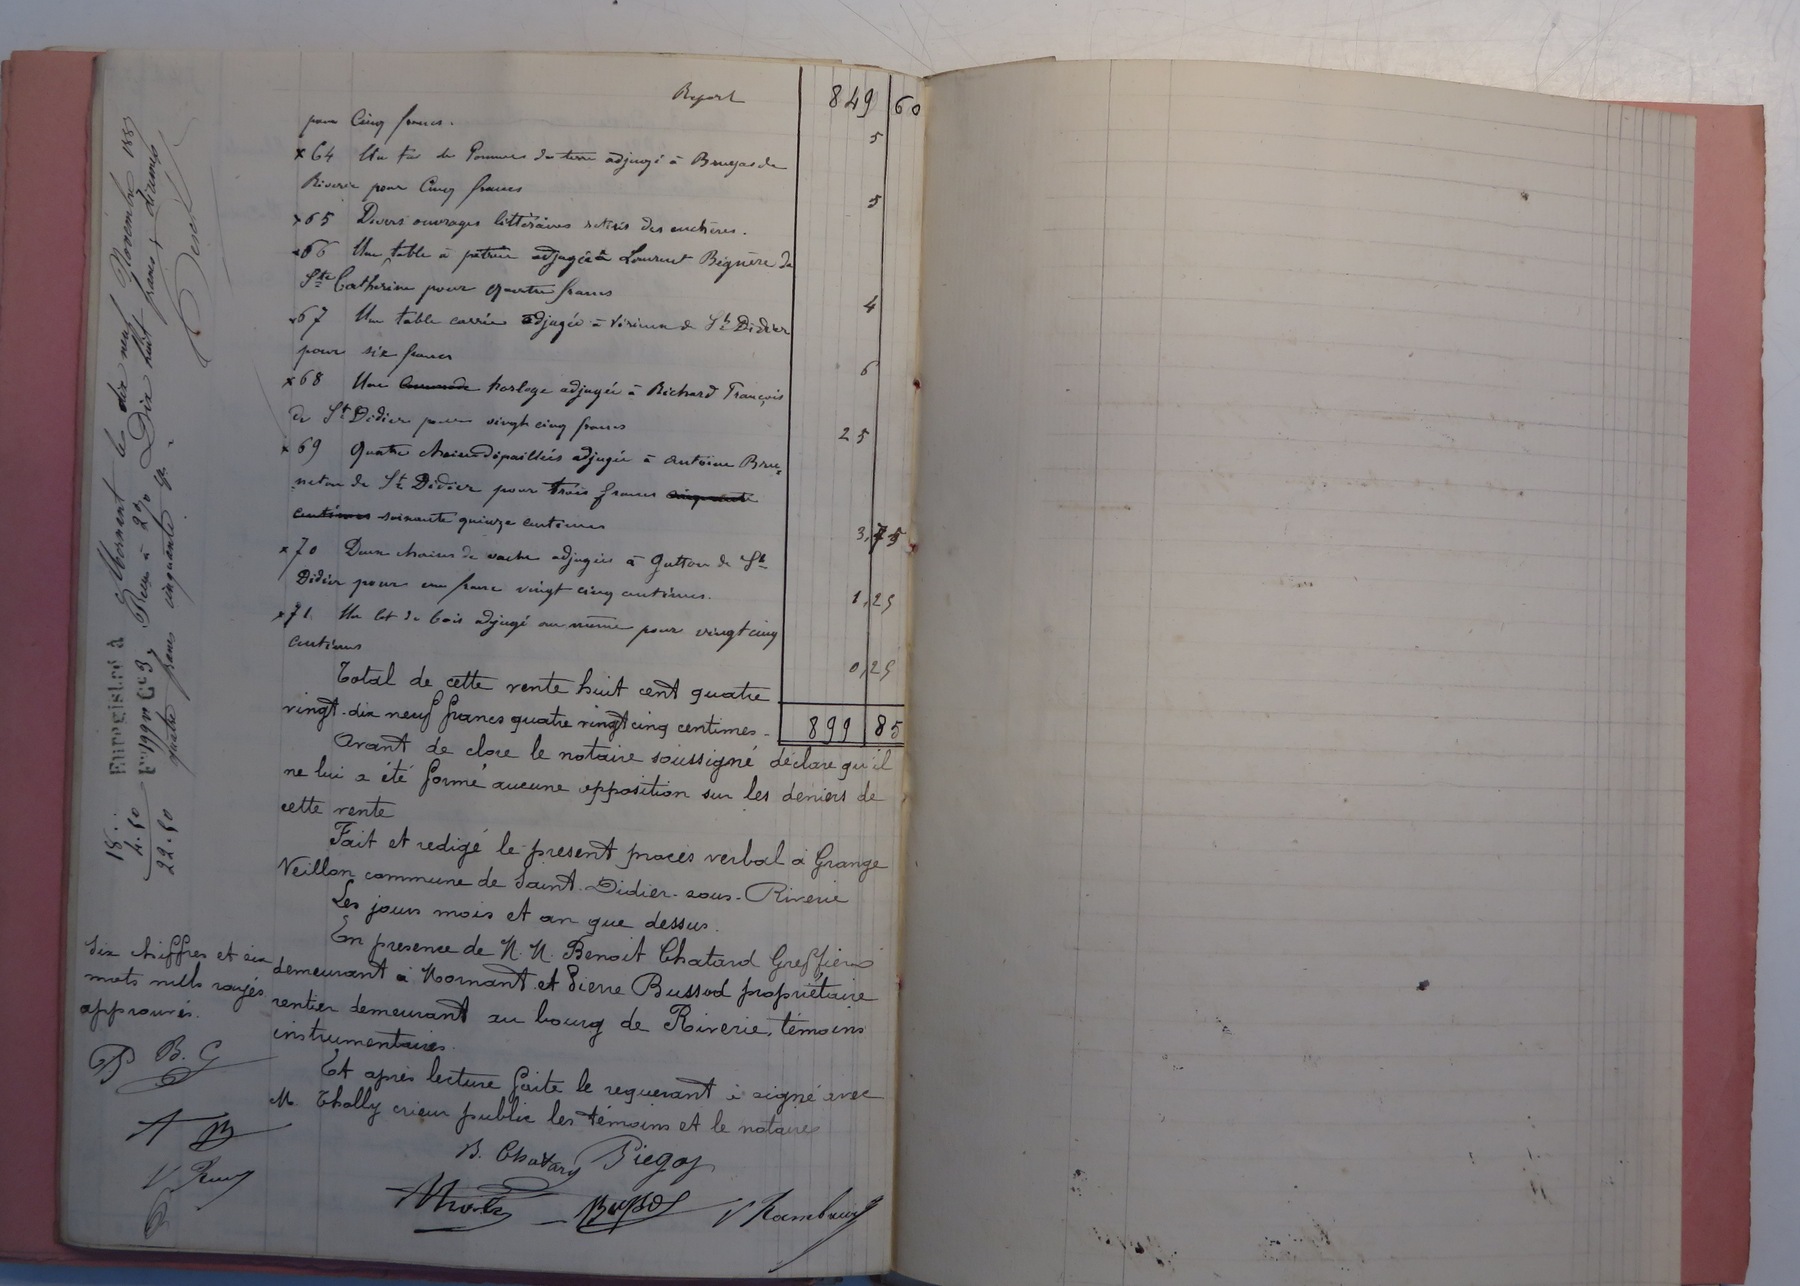 Report 849 60
pour Cinq francs. 5
x 64 Un tas de Pommes de terre adjugé à Bruyas de
Riverie pour Cinq francs 5
x 65 Divers ouvrages littéraires retirés des enchères.
x 66 Une table à pétrir adjugée à Laurent Béguère de
Ste Catherine pour quatre francs 4
x 67 Une table carrée adjugée à Véricel de St Didier
pour six francs 6
x 68 Une commode horloge adjugée à Richard François
de St Didier pour vingt cinq francs 25
x 69 Quatre chaises dépaillées adjugées à Antoine Bru-
neton de St Didier pour trois francs cinquante
centimes soixante quinze centimes 3,75
x 70 Deux chaines de vache adjugées à Gutton de St
Didier pour un franc vingt cinq centimes. 1,25
x 71. Un lot de bois adjugé au même pour vingt cinq
centimes 0,25
Total de cette vente huit cent quatre
vingt-dix neuf francs quatre vingt cinq centimes. 899 85
Avant de clore le notaire soussigné déclare qu'il
ne lui a été formé aucune opposition sur les deniers de
cette vente
Fait et redigé le présent procès verbal à Grange
Veillon commune de Saint-Didier-sous-Riverie
Les jours mois et an que dessus.
En presence de M. M. Benoit Chatard Greffier
demeurant à Mornant et Pierre Bussod propriétaire
rentier demeurant au bourg de Riverie, témoins
instrumentaires.
Et après lecture faite le requerant a signé avec
M. Tholly crieur public les témoins et le notaire
B. Chatard Piegay
Bussod
Enregistré à Mornant le dix neuf Novembre 188
Fo 199 Vo Ce 3, Reçu à 2% Dix huit francs & décimes
quatre francs cinquante ces.
18..
4.50
22.50
dix chiffres et six
mots nuls rayés
approuvés.
B. G